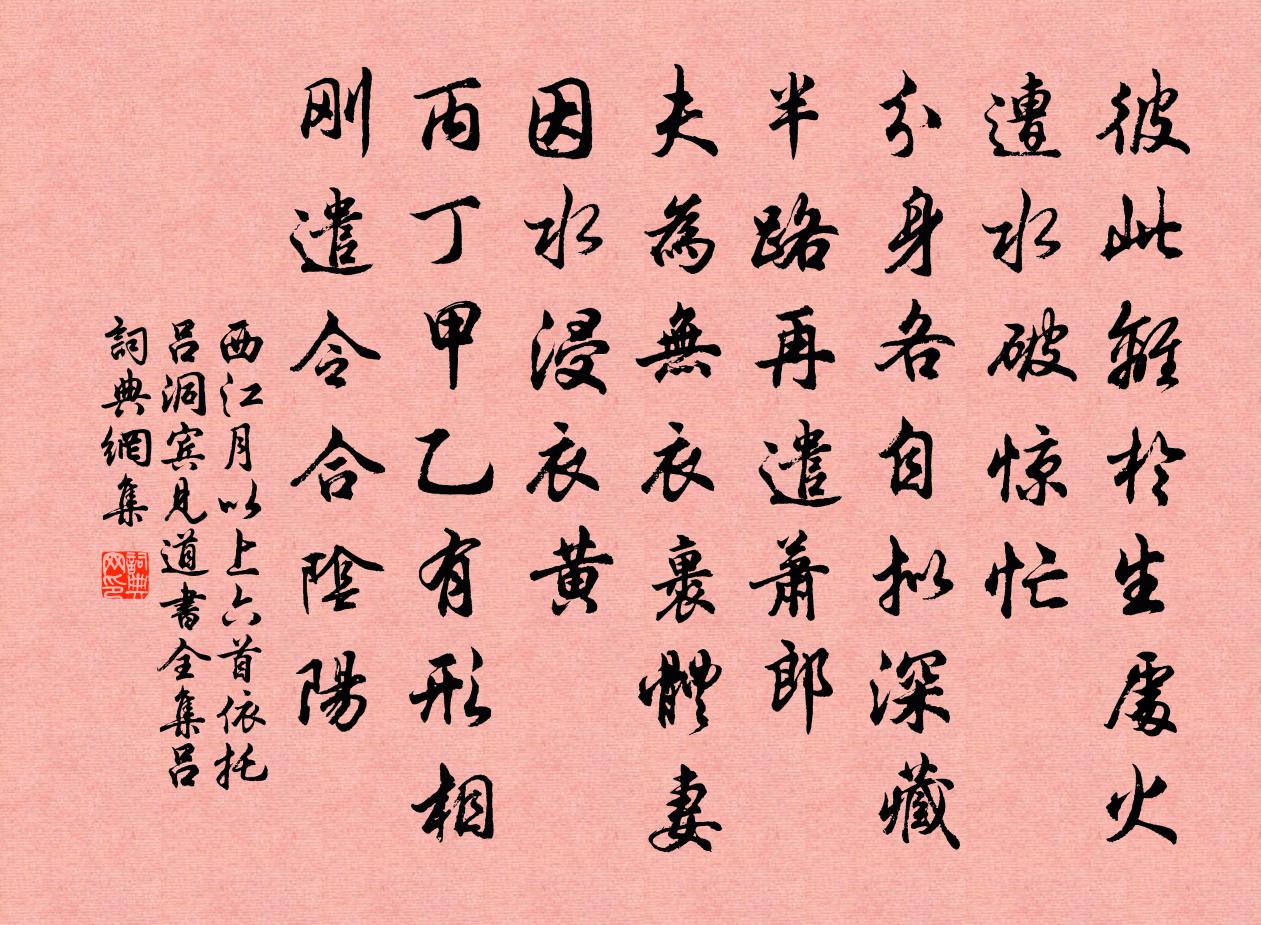 彼此離於生處火
遭水破惊忙
分身各自拟深藏
半路再遣蕭郎
夫為無衣裹體妻
因水浸衣黄
丙丁甲乙有形相
刚遣令合陰陽
西江月以上六首依托
吕洞宾見道書全集吕
詞典網集